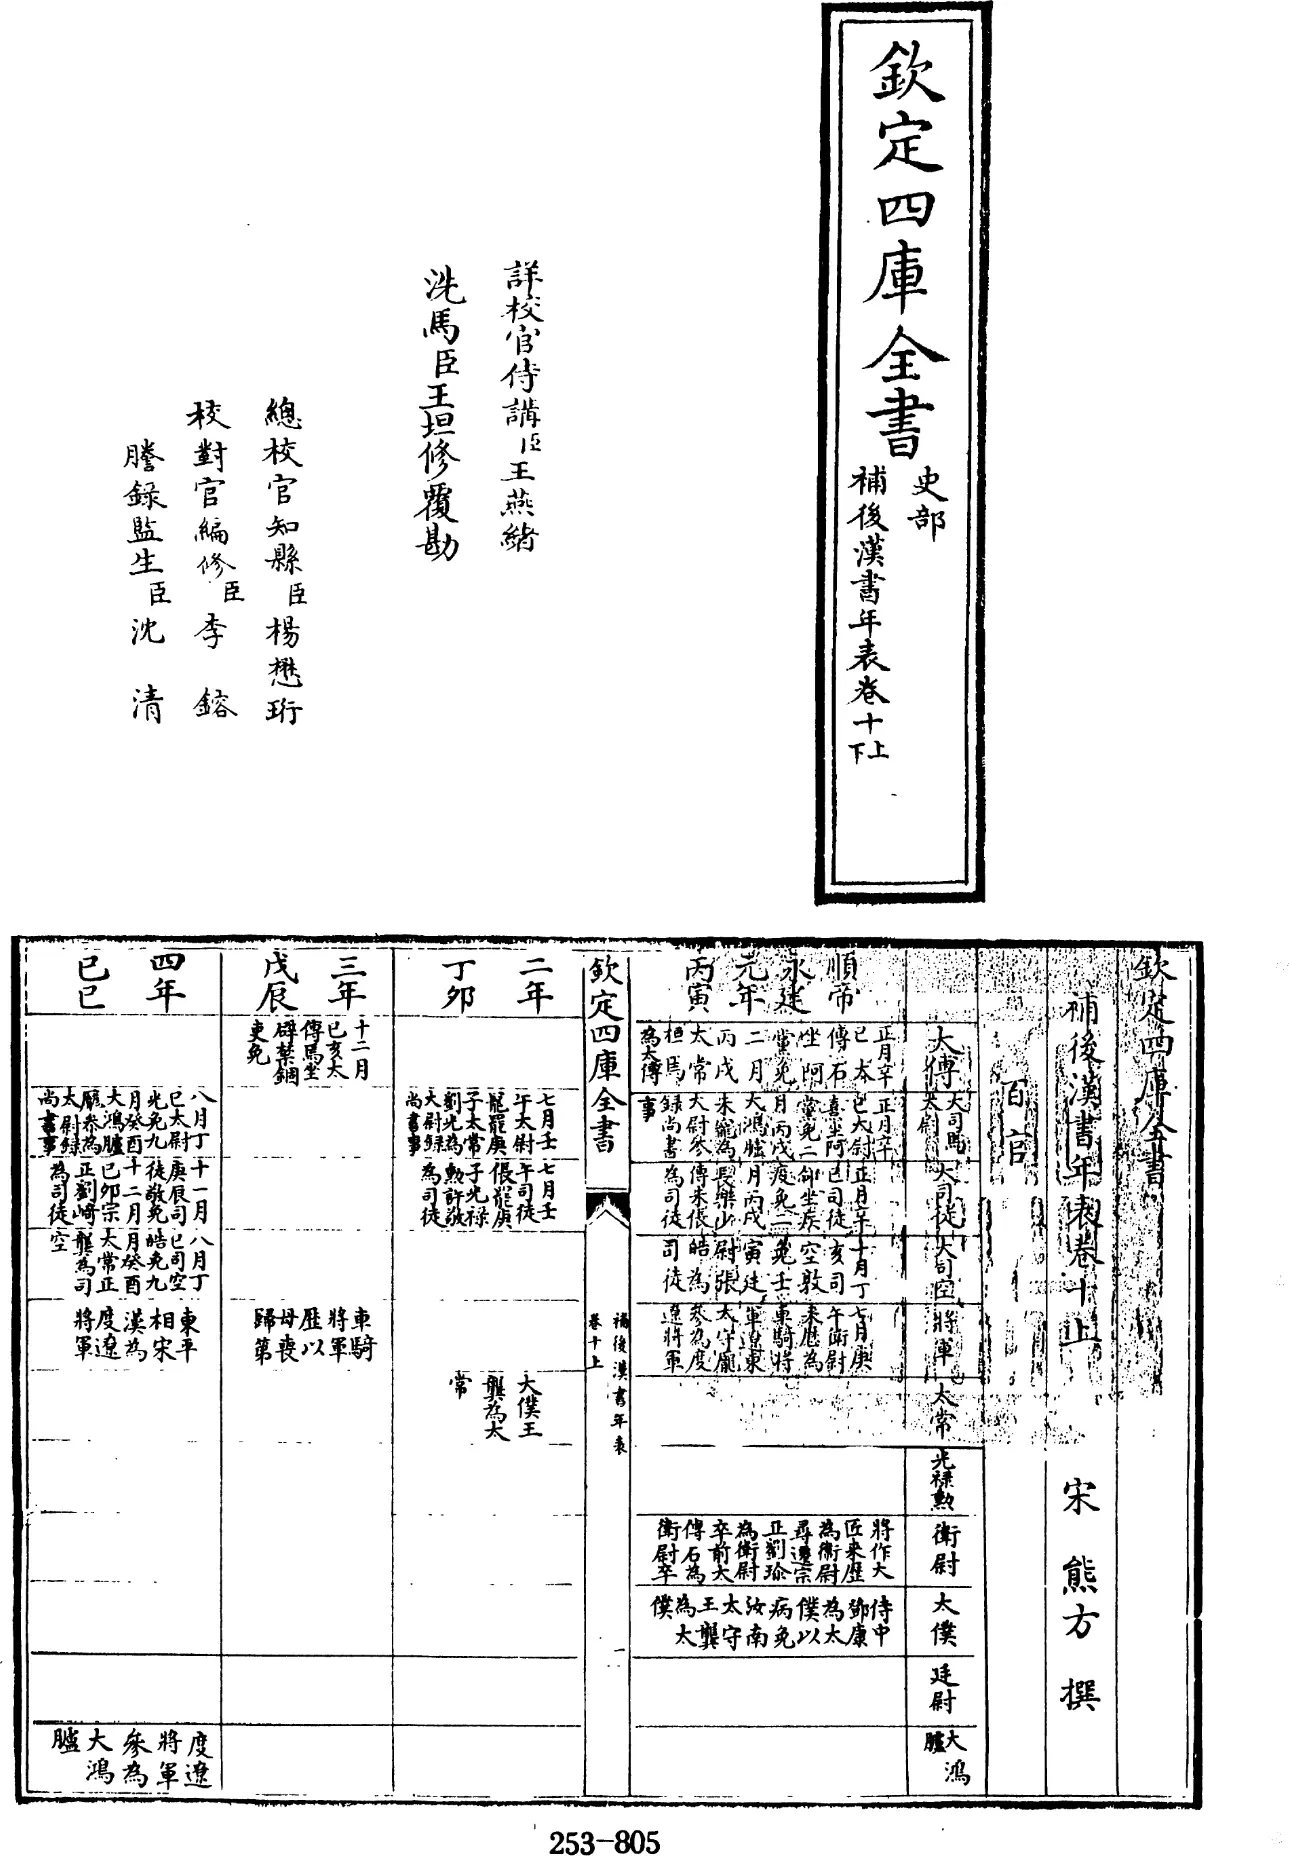 欽定四庫全書
史部
補後漢書年表卷十上
下
詳校官侍講臣王燕緒
洗馬臣王坦修覆勘
總校官知縣臣楊懋珩
校對官編修臣李鎔
謄錄監生臣沈清
欽定四庫全書
補後漢書年表卷十上 宋 熊方 撰
百官
太傅
大司馬
太尉
大司徒
大司空
將軍
太常
光禄勲
衛尉
太僕
廷尉
大鴻
臚
順帝
永建
元年
丙寅
正月辛
已太
傅石
坐阿
黨免
二月
丙戌
太常
桓馬
為太傅
正月辛
已太尉
熹坐阿
黨免二
月丙戌
大鴻臚
朱寵為
太尉參
録尚書
事
正月辛
已司徒
郃坐疾
疫免二
月丙戌
長樂少
傅朱倀
為司徒
十月丁
亥司
空敦
免壬
寅廷
尉張
皓為
司徒
七月庚
午衛尉
來歴為
車騎將
軍遼東
太守龐
參為度
遼將軍
將作大
匠來歴
為衛尉
尋遷宗
正劉珍
為衛尉
卒前大
傅石為
衛尉卒
侍中
鄧康
為太
僕以
病免
汝南
太守
王龔
為太
僕
欽定四庫全書
補後漢書年表
卷十上
一
二年
丁卯
七月壬
午太尉
寵罷庚
子太常
劉光為
大尉録
尚書事
七月壬
午司徒
倀罷庚
子光禄
勲許敬
為司徒
大僕王
龔為太
常
三年
戊辰
十二月
已亥太
傅馬坐
辟禁錮
吏免
車騎
將軍
歴以
母喪
歸第
四年
己巳
八月丁
已太尉
光免九
月癸酉
大鴻臚
龐參為
太尉録
尚書事
十一月
庚辰司
徒敬免
十二月
已卯宗
正劉﨑
為司徒
八月丁
已司空
皓免九
月癸酉
大常王
龔為司
空
東平
相宋
漢為
度遼
將軍
度遼
將軍
參為
大鴻
臚
253-805